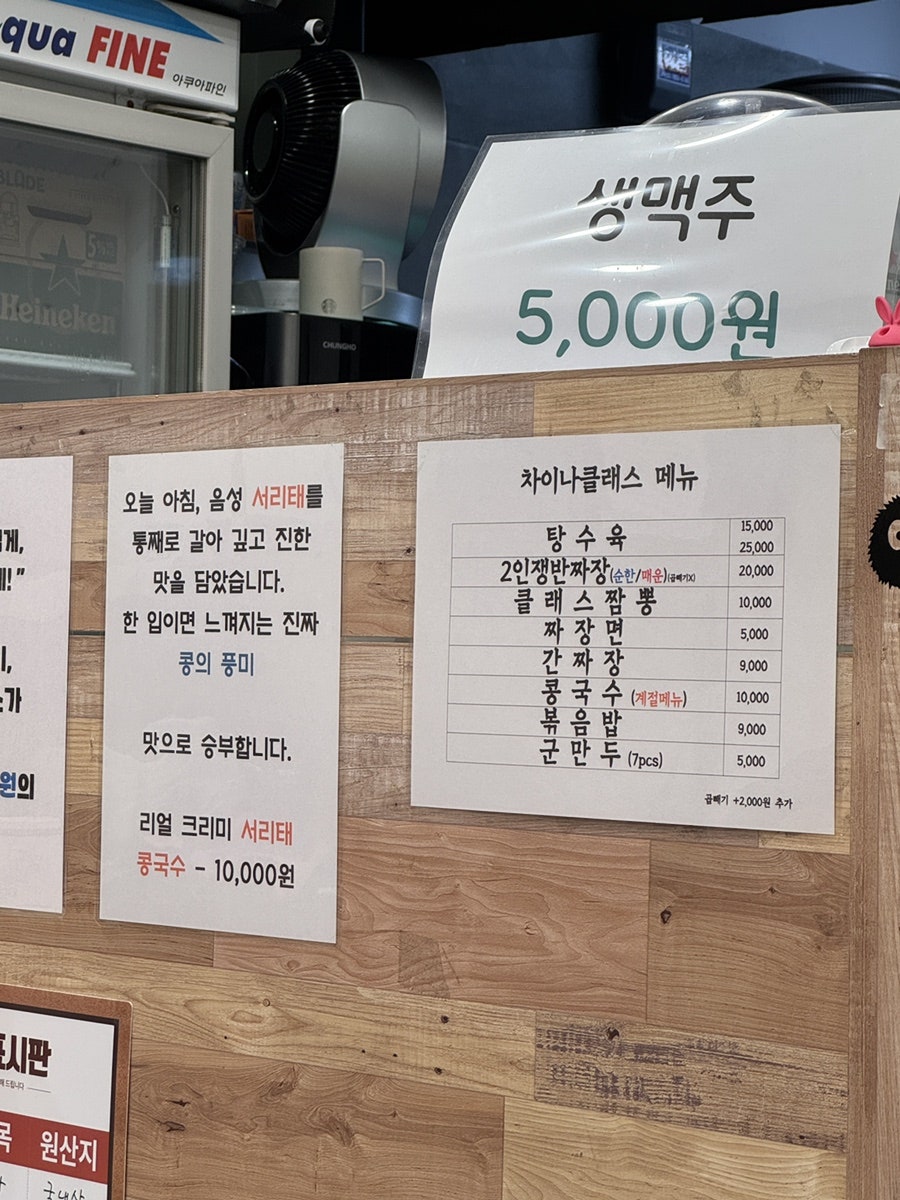 qua FINE
아쿠아파인
Heineken
CHUNGHO
생맥주
5,000원
게,
!”
가
원의
오늘 아침, 음성 서리태를
통째로 갈아 깊고 진한
맛을 담았습니다.
한 입이면 느껴지는 진짜
콩의 풍미
맛으로 승부합니다.
리얼 크리미 서리태
콩국수 - 10,000원
차이나클래스 메뉴
탕 수 육 15,000
25,000
2인쟁반짜장(순한/매운)(곱빼기X) 20,000
클 래 스 짬 뽕 10,000
짜 장 면 5,000
간 짜 장 9,000
콩 국 수 (계절메뉴) 10,000
볶 음 밥 9,000
군 만 두 (7pcs) 5,000
곱빼기 +2,000원 추가
표시판
목 원산지